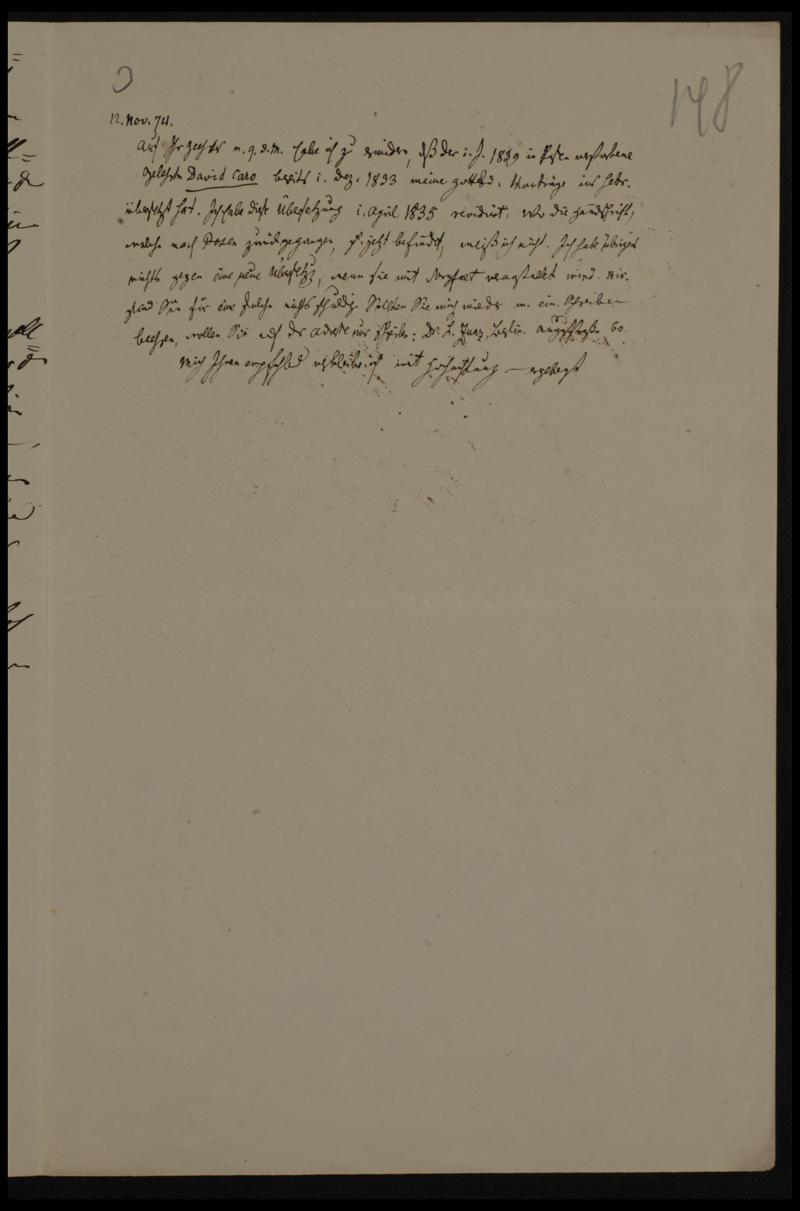 148
12. Nov. 74.
Auf Ihr geehrtes v. 9. d. M. habe ich zu erwidern, dß der i. J. 1839 in Posen verstorbene
Gelehrte David Caro bereits i. Dez. 1833 meine gottesd. Vorträge ins Hebr.
übersetzt hat. Ich habe diese Übersetzung i. April 1835 revidirt. Wo die Handschrift,
welche nach Posen zurückgegangen, s. jetzt befindet, weiß ich nicht. Ich habe übrigens
nichts gegen eine neue Übersetzg, wenn sie mit Sorgfalt veranstaltet wird. Mir
sind Sie für eine solche nichts schuldig. Sollten Sie mich wieder m. ein. Schreiben
beehren, wollen Sie auf der Adresse nur schreiben: Dr. L. Zunz, Berlin. Auguststraße 60.
Mich Ihnen empfehlend verbleibe ich mit Hochachtung — ergebenst